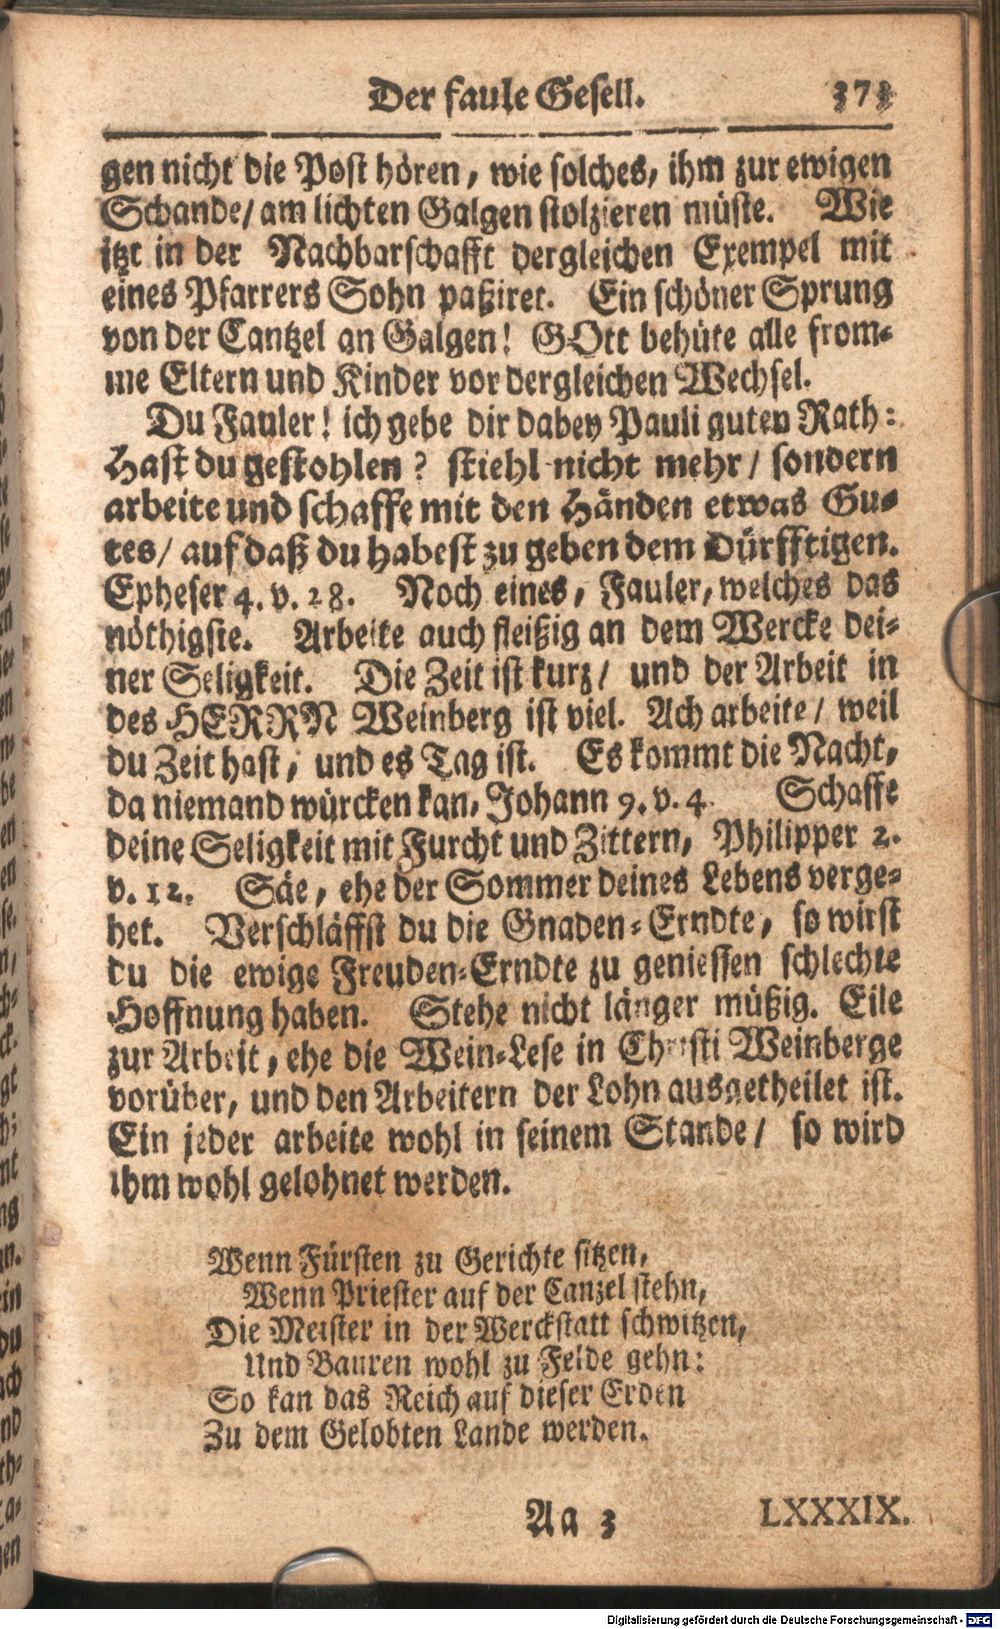 Der faule Gesell. 373
gen nicht die Post hören, wie solches, ihm zur ewigen
Schande/ am lichten Galgen stolzieren müste. Wie
itzt in der Nachbarschafft dergleichen Exempel mit
eines Pfarrers Sohn paßiret. Ein schöner Sprung
von der Cantzel an Galgen! GOtt behüte alle from-
me Eltern und Kinder vor dergleichen Wechsel.
Du Fauler! ich gebe dir dabey Pauli guten Rath:
Hast du gestohlen? stiehl nicht mehr/ sondern
arbeite und schaffe mit den Händen etwas Gu-
tes/ auf daß du habest zu geben dem Dürfftigen.
Epheser 4. v. 28. Noch eines, Fauler, welches das
nöthigste. Arbeite auch fleißig an dem Wercke dei-
ner Seligkeit. Die Zeit ist kurz/ und der Arbeit in
des HERRN Weinberg ist viel. Ach arbeite/ weil
du Zeit hast, und es Tag ist. Es kommt die Nacht,
da niemand würcken kan, Johann 9. v. 4. Schaffe
deine Seligkeit mit Furcht und Zittern, Philipper 2.
v. 12. Säe, ehe der Sommer deines Lebens verge-
het. Verschläffst du die Gnaden-Erndte, so wirst
du die ewige Freuden-Erndte zu geniessen schlechte
Hoffnung haben. Stehe nicht länger müßig. Eile
zur Arbeit, ehe die Wein-Lese in Christi Weinberge
vorüber, und den Arbeitern der Lohn ausgetheilet ist.
Ein jeder arbeite wohl in seinem Stande/ so wird
ihm wohl gelohnet werden.
Wenn Fürsten zu Gerichte sitzen,
Wenn Priester auf der Canzel stehn,
Die Meister in der Werckstatt schwitzen,
Und Bauren wohl zu Felde gehn:
So kan das Reich auf dieser Erden
Zu dem Gelobten Lande werden.
Aa 3 LXXXIX.
Digitalisierung gefördert durch die Deutsche Forschungsgemeinschaft - DFG